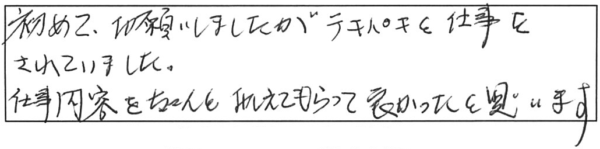 初めて、お願いしましたがテキパキと仕事を
されていました。
仕事内容をちゃんと教えてもらって良かったと思います